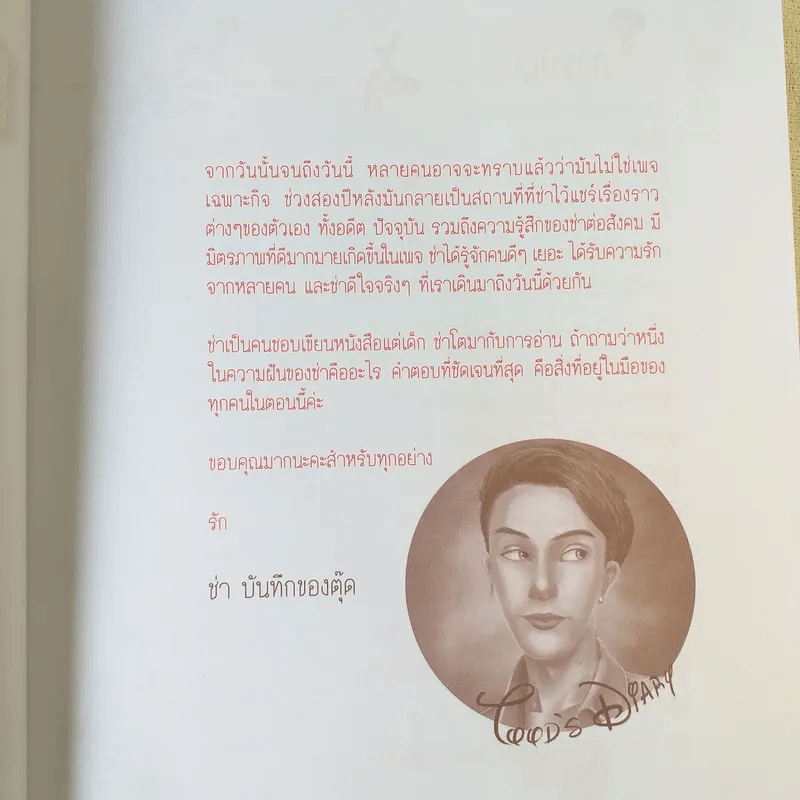 จากวันนั้นจนถึงวันนี้ หลายคนอาจจะทราบแล้วว่ามันไม่ใช่เพจ
เฉพาะกิจ ช่วงสองปีหลังมันกลายเป็นสถานที่ที่ช่าไว้แชร์เรื่องราว
ต่างๆของตัวเอง ทั้งอดีต ปัจจุบัน รวมถึงความรู้สึกของช่าต่อสังคม มี
มิตรภาพที่ดีมากมายเกิดขึ้นในเพจ ช่าได้รู้จักคนดีๆ เยอะ ได้รับความรัก
จากหลายคน และช่าดีใจจริงๆ ที่เราเดินมาถึงวันนี้ด้วยกัน
ช่าเป็นคนชอบเขียนหนังสือแต่เด็ก ช่าโตมากับการอ่าน ถ้าถามว่าหนึ่ง
ในความฝันของช่าคืออะไร คำตอบที่ชัดเจนที่สุด คือสิ่งที่อยู่ในมือของ
ทุกคนในตอนนี้ค่ะ
ขอบคุณมากนะคะสำหรับทุกอย่าง
รัก
ช่า บันทึกของตุ๊ด
TOOD'S DIARY